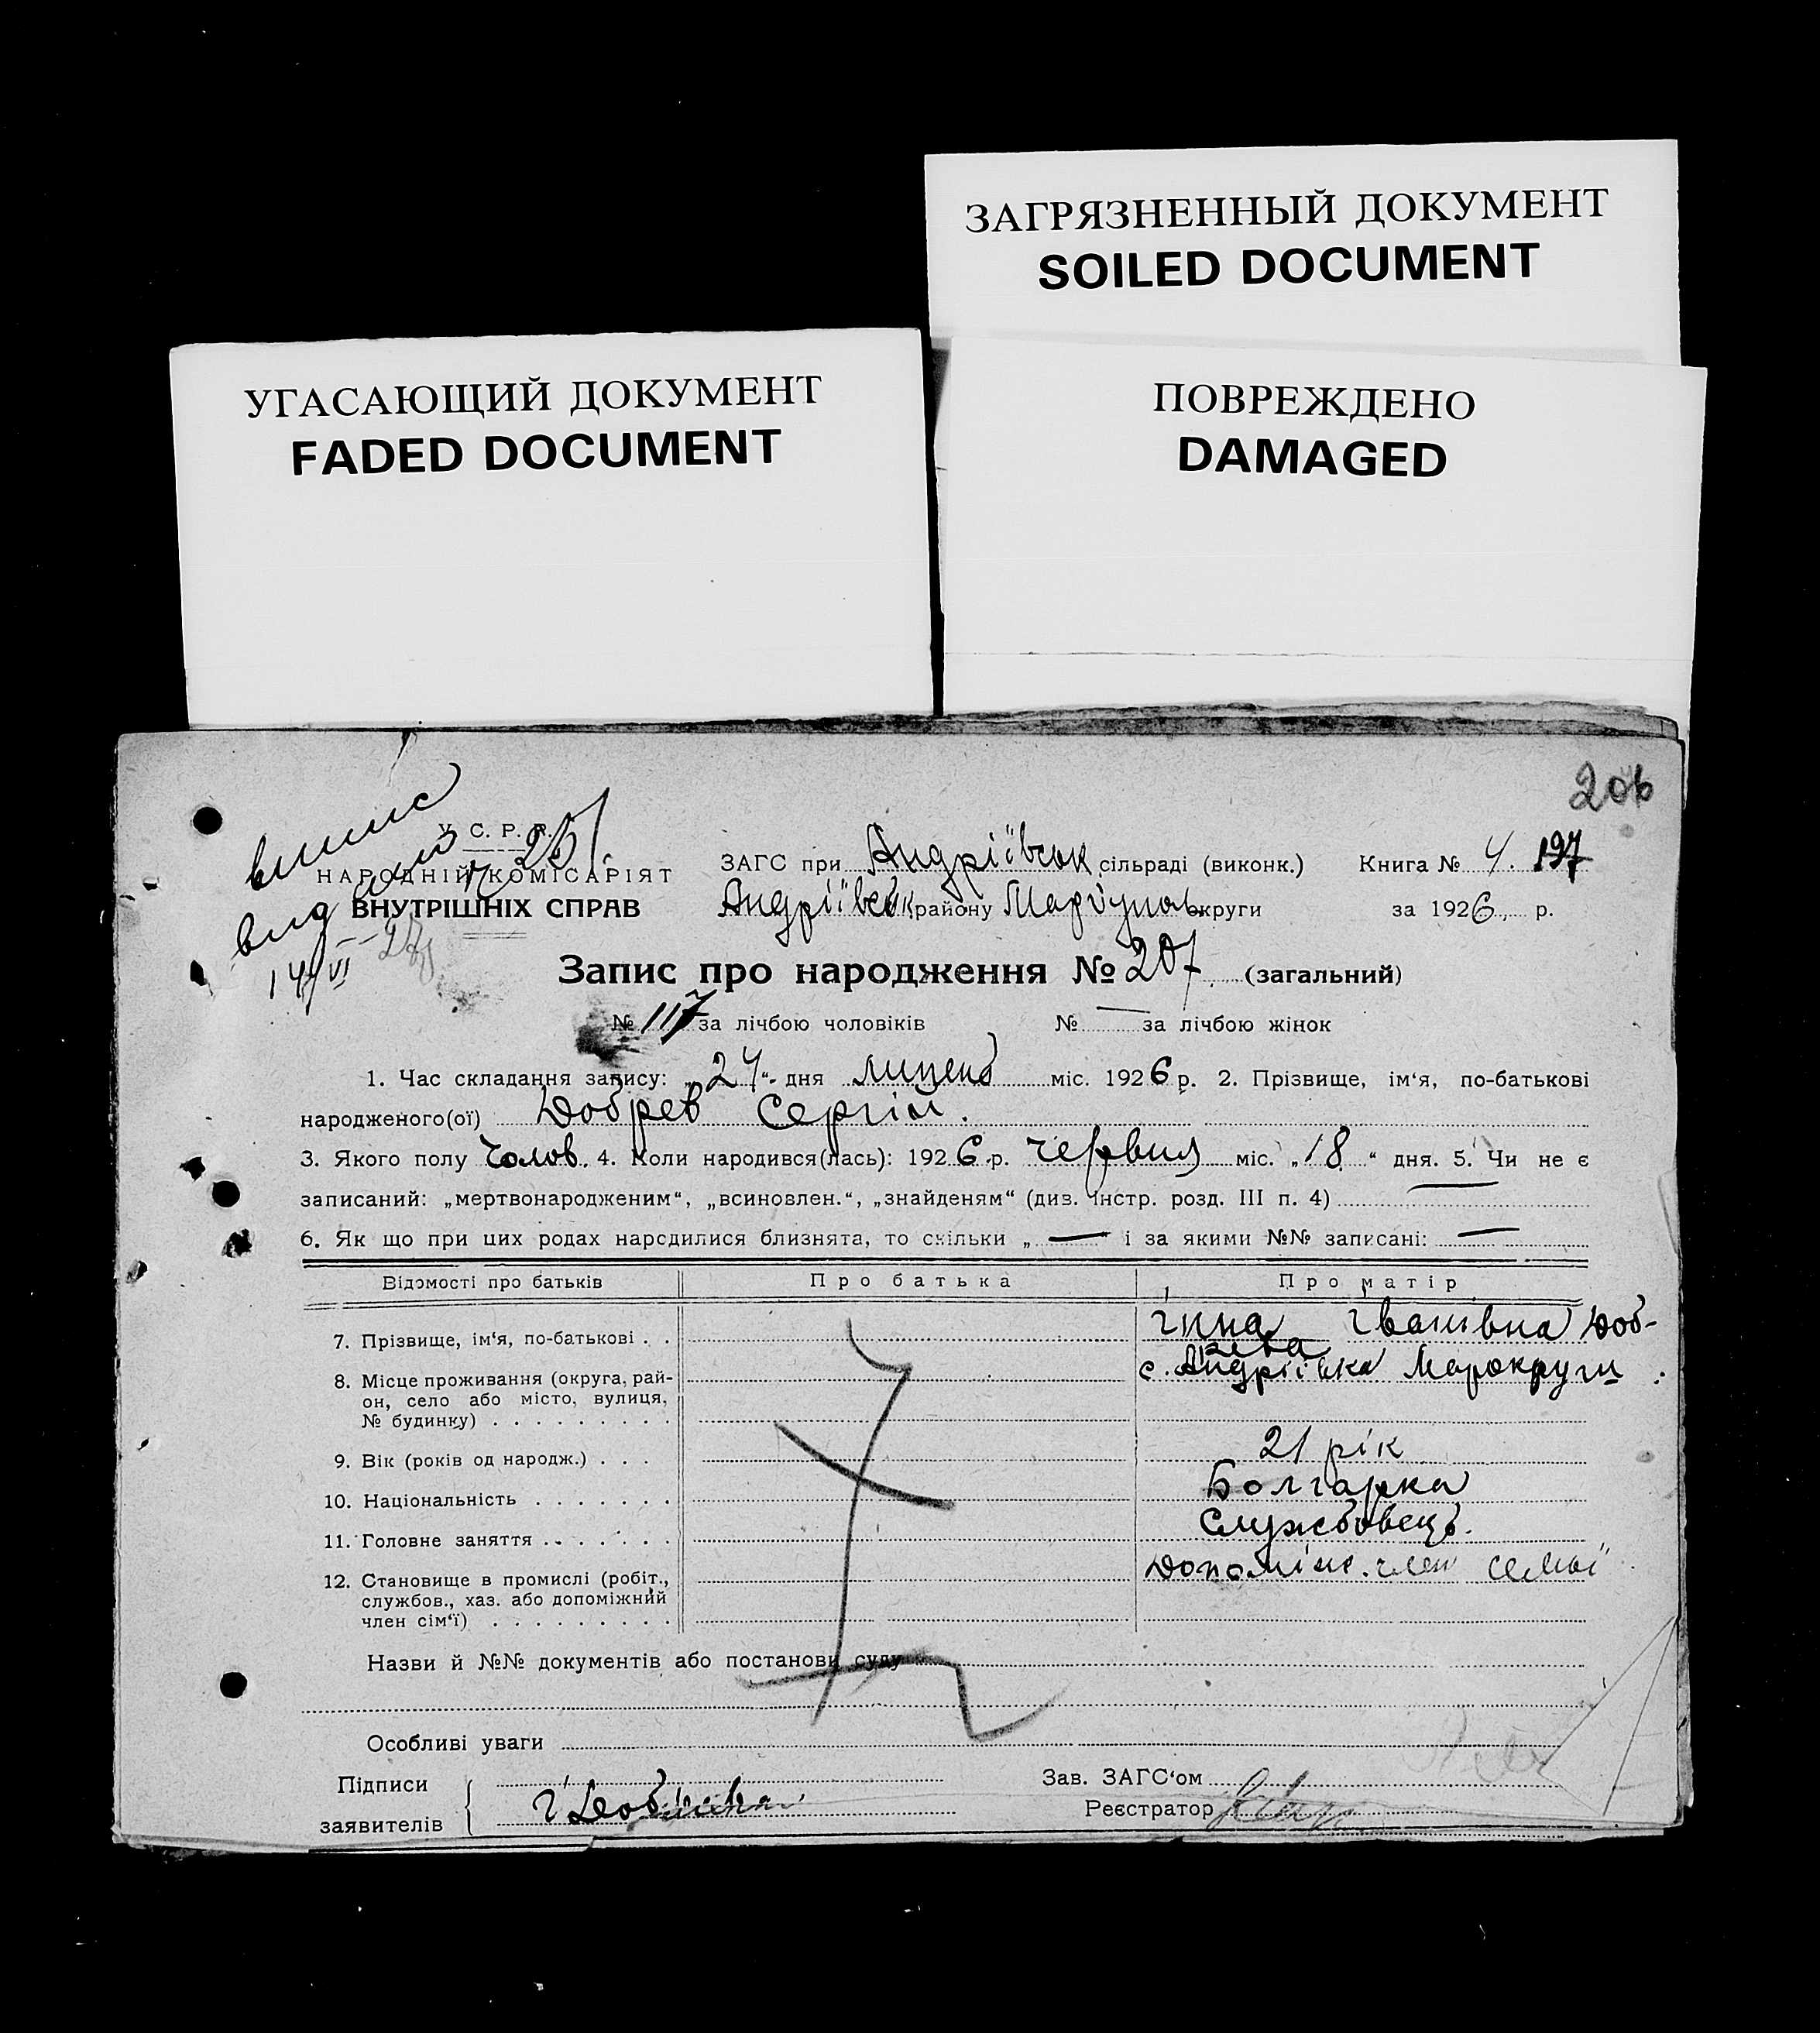 ЗАГРЯЗНЕННЫЙ ДОКУМЕНТ
SOILED DOCUMENT
УГАСАЮЩИЙ ДОКУМЕНТ
FADED DOCUMENT
ПОВРЕЖДЕНО
DAMAGED
206
У. С. Р. Р.
НАРОДНІЙ КОМІСАРІЯТ
ВНУТРІШНІХ СПРАВ
14/VI
ЗАГС при Андріївськ сільраді (виконк.) Книга № 4. 197
Андріївськ району Маріупол округи за 1926 р.
Запис про народження № 207 (загальний)
№ 117 за лічбою чоловіків № — за лічбою жінок
1. Час складання запису: „24“ дня липень міс. 1926 р. 2. Прізвище, ім‘я, по-батькові
народженого(ої) Добрев Сергій.
3. Якого полу Чолов. 4. Коли народився(лась): 1926 р. червня міс. „18“ дня. 5. Чи не є
записаний: „мертвонародженим“, „всиновлен.“, „знайденям“ (див. інстр. розд. III п. 4) —
6. Як що при цих родах народилися близнята, то скільки „ — і за якими №№ записані: —
Відомості про батьків Про батька Про матір
7. Прізвище, ім‘я, по-батькові . . Інна Іванівна Доб-
рева
8. Місце проживання (округа, рай- с. Андріївка Марокруги
он, село або місто, вулиця,
№ будинку) . . . . . . . . .
9. Вік (років од народж.) . . . 21 рік
10. Національність . . . . . . . Болгарка
11. Головне заняття . . . . . . . Службовець.
12. Становище в промислі (робіт., Допоміж. член семьї
службов., хаз. або допоміжний
член сім‘ї) . . . . . . . . .
Назви й №№ документів або постанови суду
Особливі уваги
Підписи Зав. ЗАГС‘ом
заявителів І Добрева Реєстратор